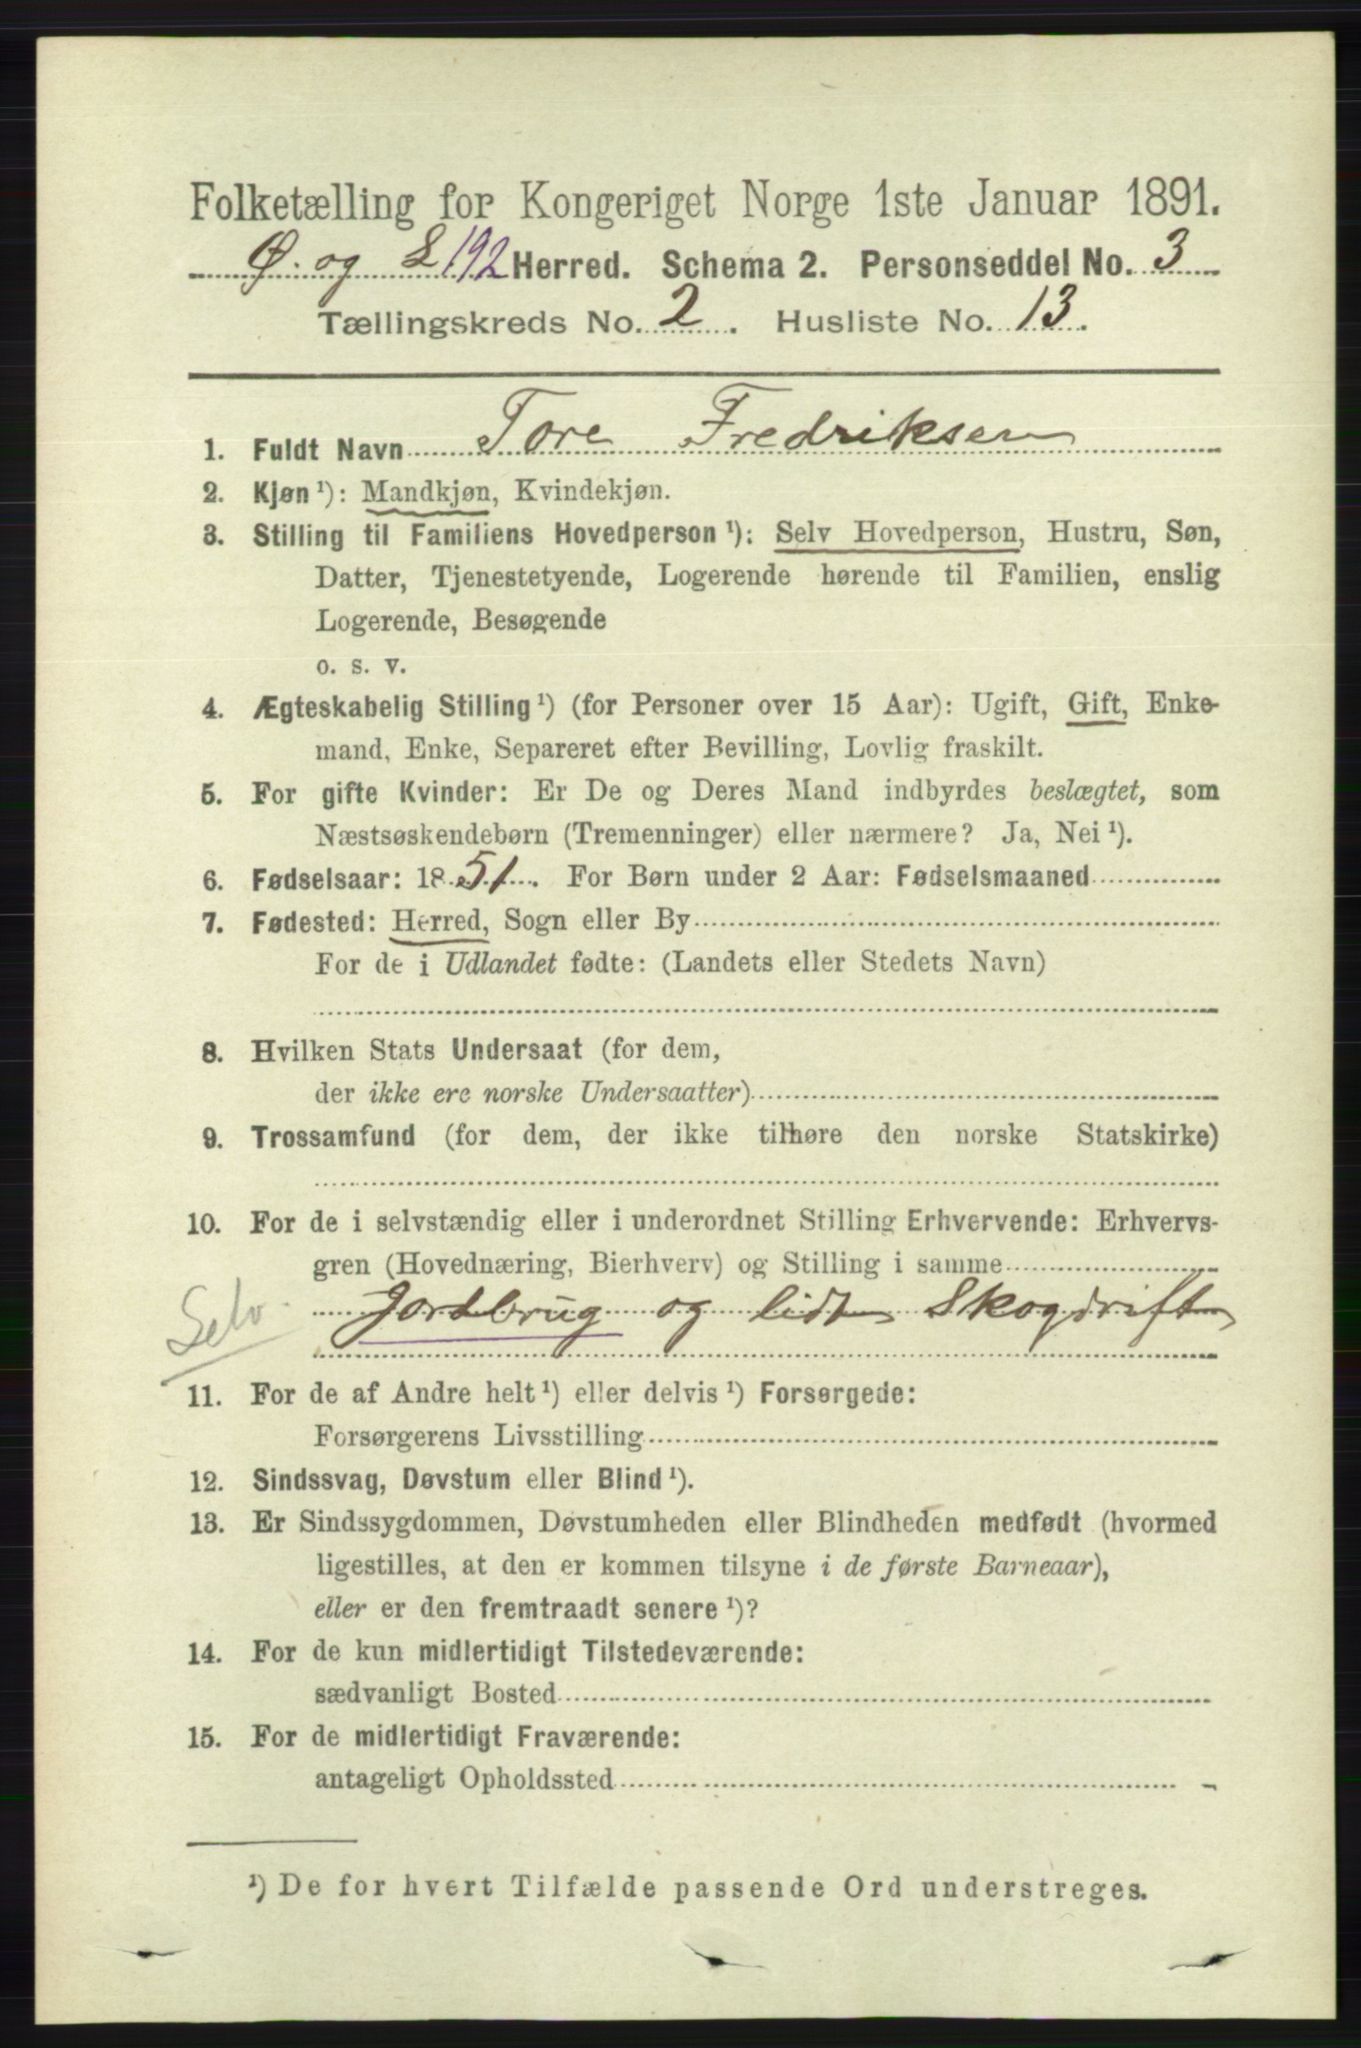 Folketælling for Kongeriget Norge 1ste Januar 1891.
Ø. og L 192 Herred. Schema 2. Personseddel No. 3
Tællingskreds No. 2. Husliste No. 13.
1. Fuldt Navn Tore Fredriksen
2. Kjøn ¹): Mandkjøn, Kvindekjøn.
3. Stilling til Familiens Hovedperson ¹): Selv Hovedperson, Hustru, Søn,
Datter, Tjenestetyende, Logerende hørende til Familien, enslig
Logerende, Besøgende
o. s. v.
4. Ægteskabelig Stilling ¹) (for Personer over 15 Aar): Ugift, Gift, Enke-
mand, Enke, Separeret efter Bevilling, Lovlig fraskilt.
5. For gifte Kvinder: Er De og Deres Mand indbyrdes beslægtet, som
Næstsøskendebørn (Tremenninger) eller nærmere? Ja, Nei ¹).
6. Fødselsaar: 1851. For Børn under 2 Aar: Fødselsmaaned
7. Fødested: Herred, Sogn eller By
For de i Udlandet fødte: (Landets eller Stedets Navn)
8. Hvilken Stats Undersaat (for dem,
der ikke ere norske Undersaatter)
9. Trossamfund (for dem, der ikke tilhøre den norske Statskirke)
10. For de i selvstændig eller i underordnet Stilling Erhvervende: Erhvervs-
gren (Hovednæring, Bierhverv) og Stilling i samme
Selv Jordbrug og lidt Skogdrift
11. For de af Andre helt ¹) eller delvis ¹) Forsørgede:
Forsørgerens Livsstilling
12. Sindssvag, Døvstum eller Blind ¹).
13. Er Sindssygdommen, Døvstumheden eller Blindheden medfødt (hvormed
ligestilles, at den er kommen tilsyne i de første Barneaar),
eller er den fremtraadt senere ¹)?
14. For de kun midlertidigt Tilstedeværende:
sædvanligt Bosted
15. For de midlertidigt Fraværende:
antageligt Opholdssted
¹) De for hvert Tilfælde passende Ord understreges.